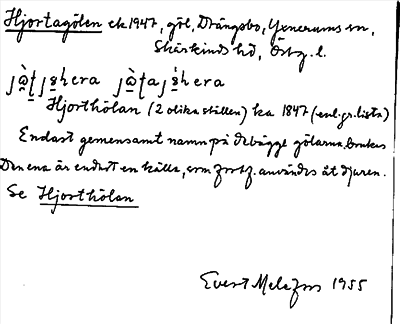 Hjortagölen ek 1947, göl, Drängsbo, Yxnerums sn,
Skärkinds hd, Östg. l.
Hjorthölan (2 olika ställen) ka 1847 (enl. gr. lista)
Endast gemensamt namn på de bägge gölarna brukas
Den ena är endast en källa, som fortf. användes åt djuren.
Se Hjorthölan
Evert Melefors 1955